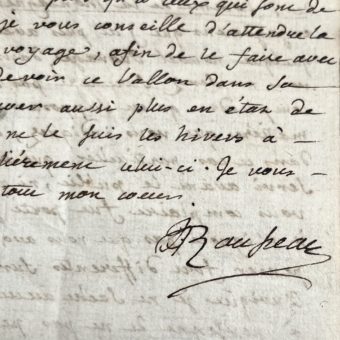 ceux qui sont de
je vous conseille d'attendre la
voyage, afin de le faire avec
devoir ce Vallon dans sa
uver aussi plus en état de
ne le suis les hivers à-
lièrement celui-ci. Je vous-
tout mon coeur.
JJRousseau